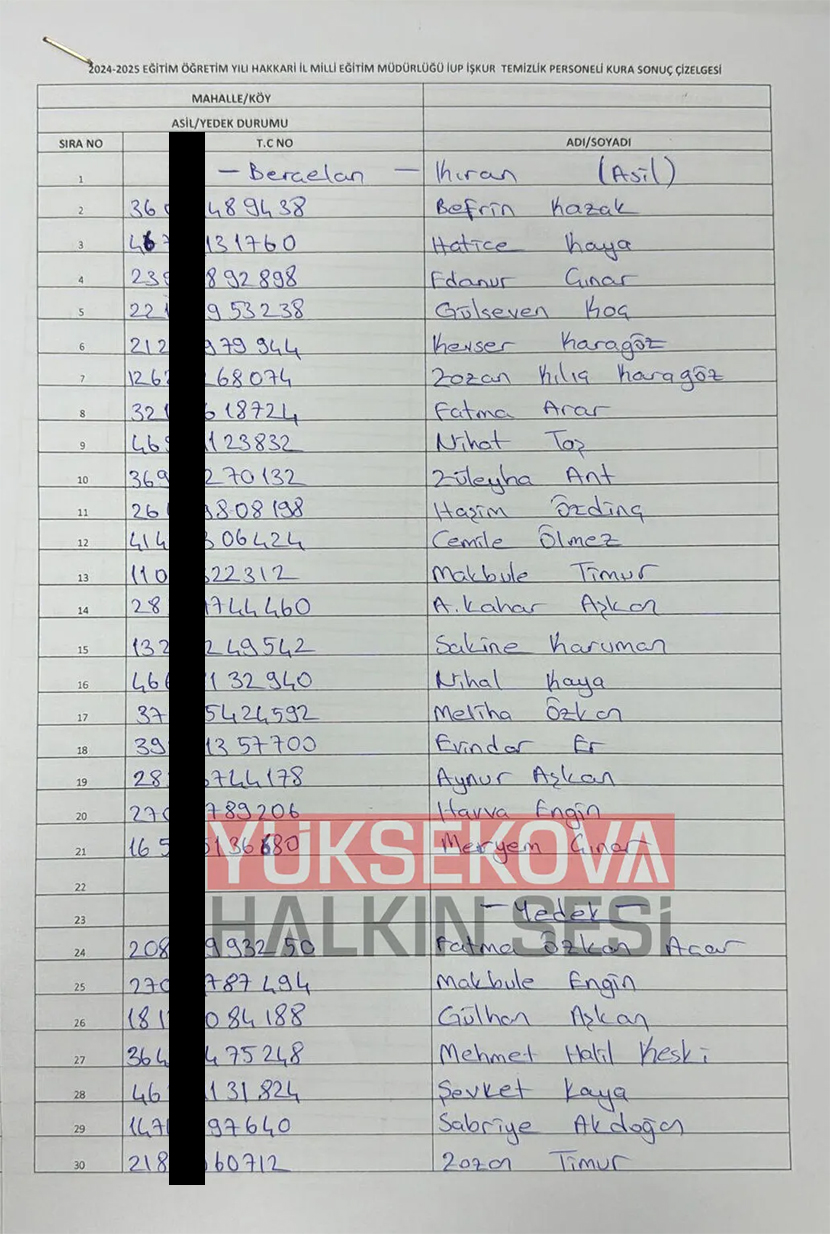 2024-2025 EĞİTİM ÖĞRETİM YILI HAKKARİ İL MİLLİ EĞİTİM MÜDÜRLÜĞÜ İUP İŞKUR TEMİZLİK PERSONELİ KURA SONUÇ ÇİZELGESİ
MAHALLE/KÖY
ASİL/YEDEK DURUMU
SIRA NO T.C NO ADI/SOYADI
1 - Bercelan - Kıran (Asil)
2 36 489438 Befrin Kazak
3 467 131760 Hatice Kaya
4 239 892898 Edanur Çınar
5 221 953238 Gülseven Koç
6 212 979944 Kevser Karagöz
7 126 268074 Zozan Kılıç Karagöz
8 321 618724 Fatma Acar
9 469 123832 Nihat Taş
10 369 270132 Züleyha Ant
11 26 808198 Haşim Özdinç
12 414 306424 Cemile Ölmez
13 110 522312 Makbule Timur
14 28 1744460 A.kahar Aşkan
15 132 249542 Sakine Karuman
16 466 132940 Nihal Kaya
17 37 5424592 Meliha Özkan
18 39 1357700 Evindar Er
19 28 5744178 Aynur Aşkan
20 270 789206 Havva Engin
21 165 136680 Meryem Çınar
YÜKSEKOVA
22
23 - Yedek -
HALKIN SESİ
24 208 993250 Fatma Özkan Acar
25 270 787494 Makbule Engin
26 181 084188 Gülhan Aşkan
27 364 475248 Mehmet Halil Keski
28 46 131824 Şevket Kaya
29 147 97640 Sabriye Akdoğan
30 218 60712 Zozan Timur